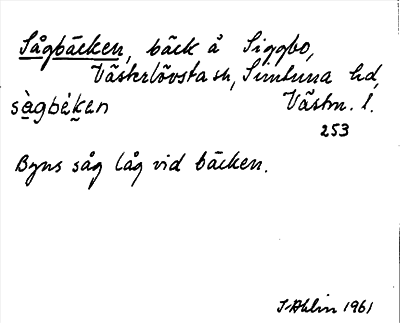 Sågbäcken, bäck å Siggbo,
Västerlövsta sn, Simtuna hd,
sàgbèken Västm. l.
253
Byns såg låg vid bäcken.
I. Ahlin 1961